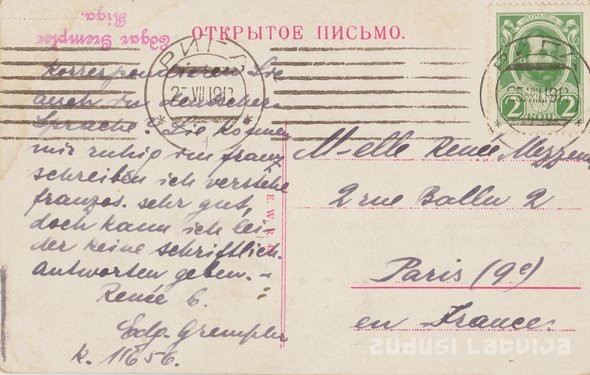 Edgar Grempler
Riga.
ОТКРЫТОЕ ПИСЬМО.
РИГА
25 VII 1913
2 2
Korrespondieren Sie
auch in deutscher
Sprache? Sie können
mir ruhig in franz.
schreiben ich verstehe
französ. sehr gut,
doch kann ich lei-
der keine schriftlich.
Antworten geben. –
Renée 6.
Edg. Grempler
K. 11656.
E. W. R.
Melle Renée
2 rue Ballu 2
Paris (9e)
en France.
ZUDUSI LATVIJA